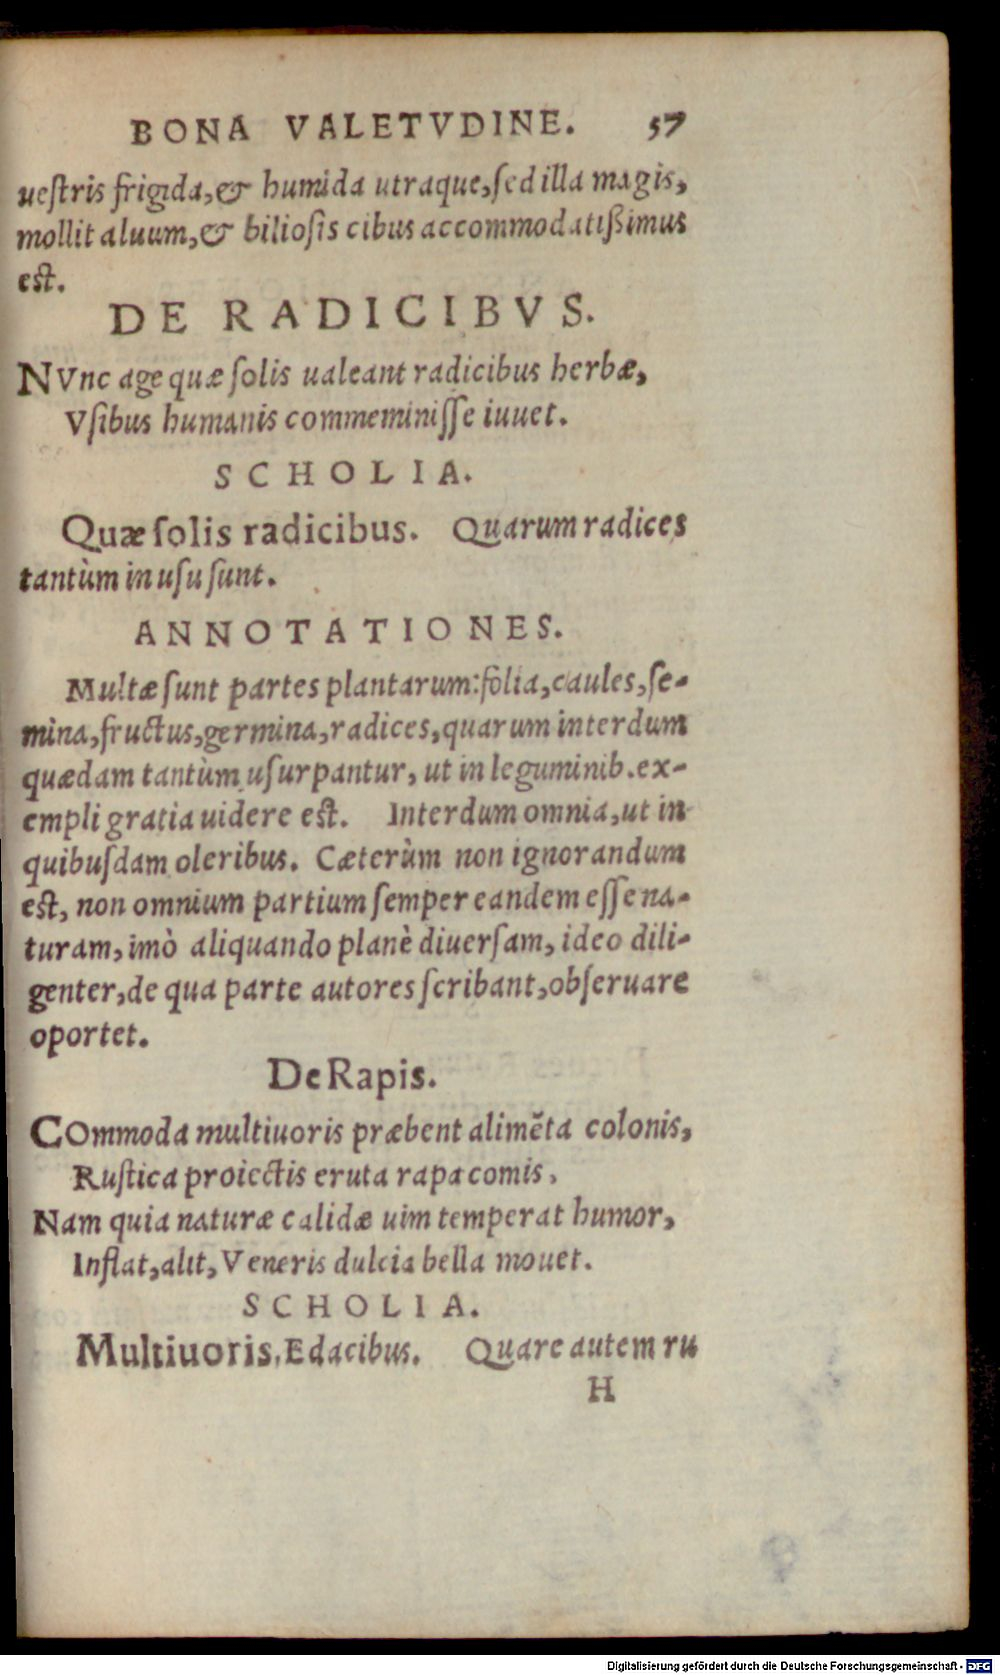 BONA VALETVDINE. 57
ueſtris frigida,& humida utraque,ſed illa magis,
mollit aluum,& bilioſis cibus accommodatiſsimus
est.
DE RADICIBVS.
NVnc age quæ ſolis ualeant radicibus herbæ,
Vſibus humanis commeminiſſe iuuet.
SCHOLIA.
Quæ ſolis radicibus. Quarum radices
tantùm in uſu ſunt.
ANNOTATIONES.
Multæ ſunt partes plantarum:folia,caules,ſe-
mina,fructus,germina,radices,quarum interdum
quædam tantùm uſurpantur, ut in leguminib.ex-
empli gratia uidere est. Interdum omnia,ut in
quibuſdam oleribus. Cæterùm non ignorandum
est, non omnium partium ſemper eandem eſſe na-
turam,imò aliquando planè diuerſam, ideo dili-
genter,de qua parte autores ſcribant,obſeruare
oportet.
De Rapis.
COmmoda multiuoris præbent alimēta colonis,
Ruſtica proiectis eruta rapa comis.
Nam quia naturæ calidæ uim temperat humor,
Inflat,alit,Veneris dulcia bella mouet.
SCHOLIA.
Multiuoris,Edacibus. Quare autem ru
H
Digitalisierung gefördert durch die Deutsche Forschungsgemeinschaft - DFG